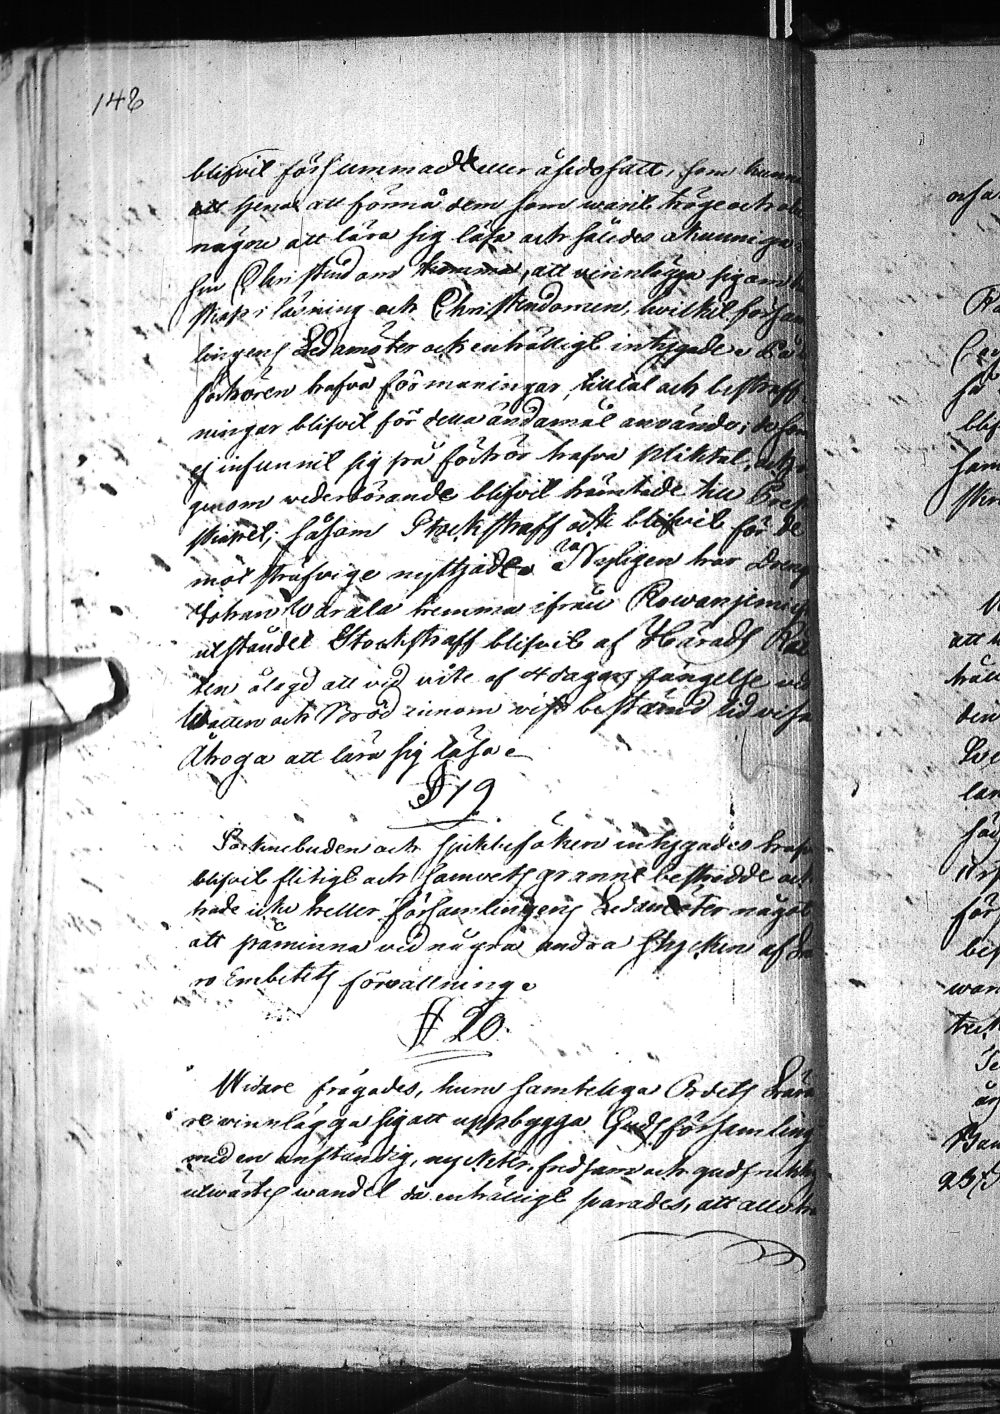 148
blifvit försummadt eller åsidosatt, som kunna
att tjena att förmå dem som warit tröge och
någon att lära sig läsa och således okunniga
sin Christendom komma, att vinnlägga sig om
skap i läsning och Christendomen, hvilket försam
lingens Ledamöter och enhälligt intygade. På
förhören hafva förmaningar, tilltal och bestraff
ningar blifvit för detta ändamål använde; de som
ej infunnit sig på förhör hafva pliktat, och
genom vederbörande blifvit hämtade till Prest
skapet; såsom Stockstraff ock blifvit för de
mot sträfvige nyttjade. Nyligen har Dreng
Johan Warala hemma ifrån Rowanjemi
utståndet Stockstraff blifvit af Härads Rät
ten ålagd att vid vite af 4 dagars fängelse vid
Watten och Bröd innom viss bestämd tid visa
åhoga att lära sig läsa.
§ 19
Socknebuden och sjukbesöken intygades hafva
blifvit flitigt och samvetsgrannt bestridde och
hade icke heller Församlingens Ledamöter något
att påminna vid några andra stycken af Lä
ro Embetets förvaltning.
§ 20.
Widare frågades, huru samteliga Ordets Lära
re vinnlägga sig att uppbygga Guds församling
med en anständig, nyckter, fredsam och gudfruktig
utwärtes wandel då enhälligt svarades, att alla